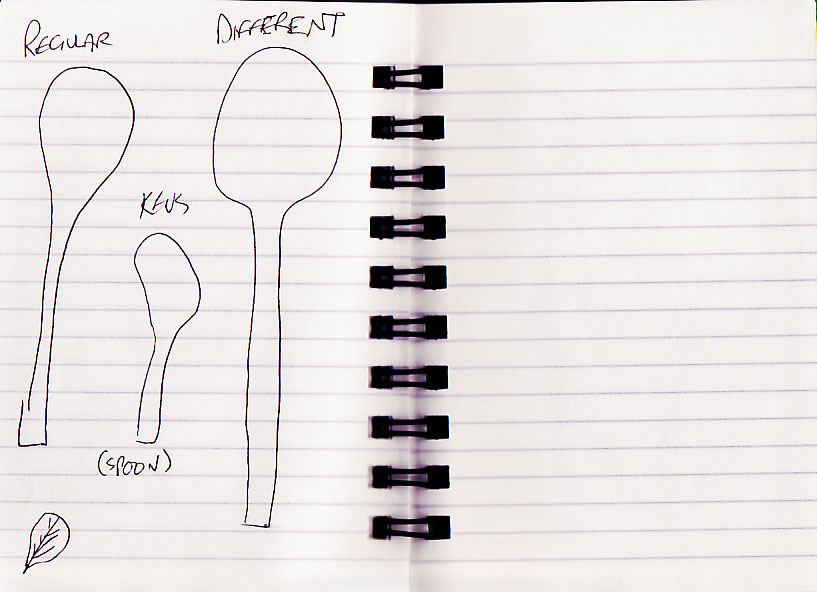 REGULAR
DIFFERENT
KEVS
(SPOON)